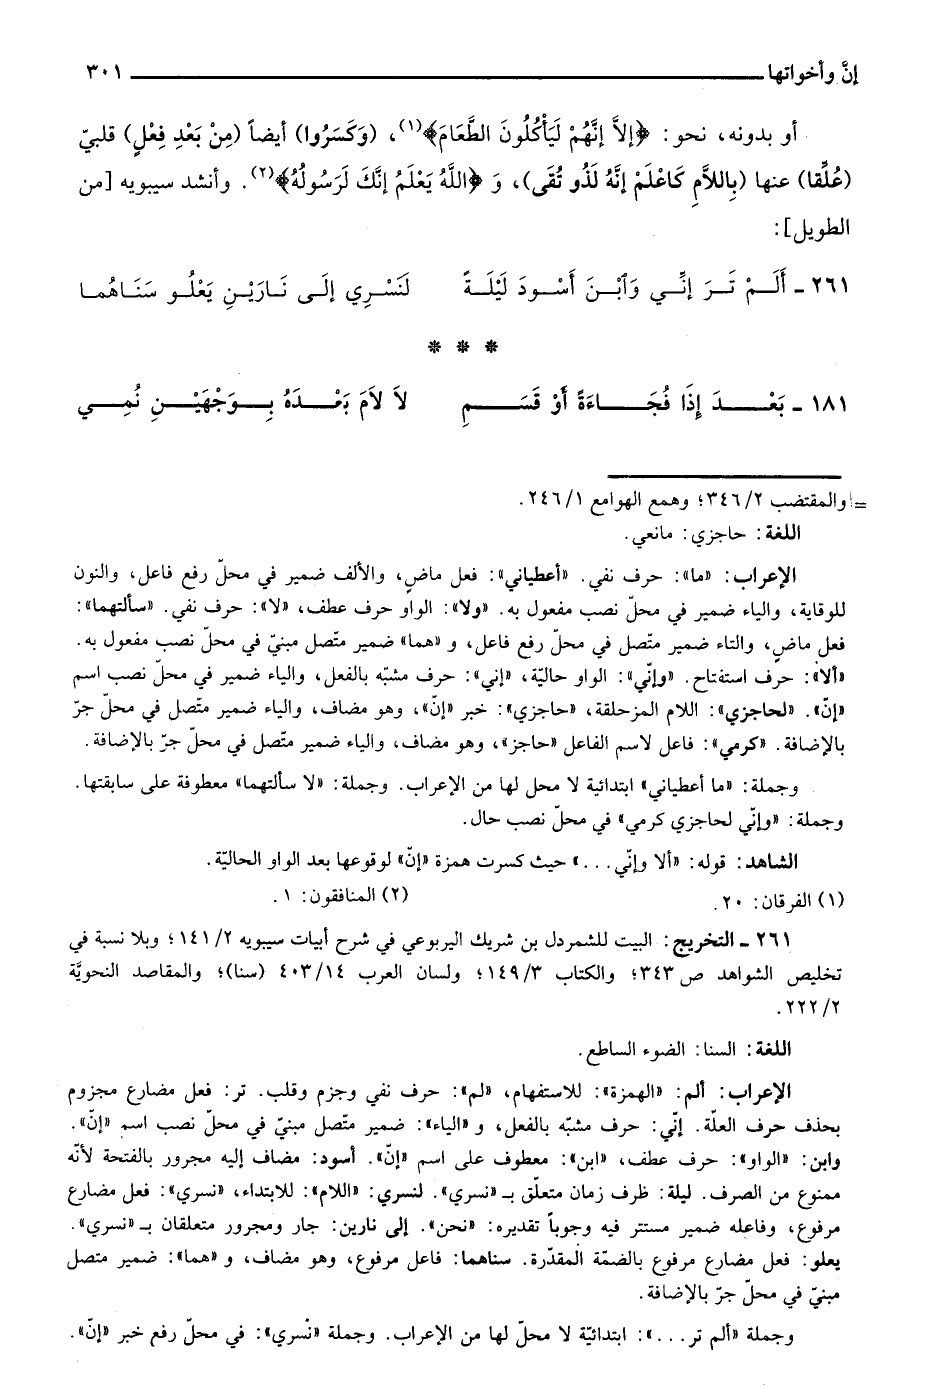 إنَّ وأخواتها ٣٠١
أو بدونه، نحو: ﴿إلاَّ إنَّهُمْ لَيَأْكُلُونَ الطَّعَامَ﴾(١)، (وَكَسَرُوا) أيضاً (مِنْ بَعْدِ فِعْلٍ) قلبيّ
(عُلِّقا) عنها (بِاللاَّمِ كَاعْلَمْ إنَّهُ لَذُو تُقَى)، وَ ﴿اللَّهُ يَعْلَمُ إنَّكَ لَرَسُولُهُ﴾(٢). وأنشد سيبويه [من
الطويل]:
٢٦١ ـ أَلَمْ تَرَ إنِّي وَٱبْنَ أَسْودَ لَيْلَةً لَنَسْرِي إلَى نَارَيْنِ يَعْلُو سَنَاهُما
* * *
١٨١ ـ بَعْدَ إذَا فُجَاءَةً أوْ قَسَمِ لاَ لاَمَ بَعْدَهُ بِوَجْهَيْنِ نُمِي
= والمقتضب ٣٤٦/٢؛ وهمع الهوامع ٢٤٦/١.
اللغة: حاجزي: مانعي.
الإعراب: «ما»: حرف نفي. «أعطياني»: فعل ماضٍ، والألف ضمير في محلّ رفع فاعل، والنون
للوقاية، والياء ضمير في محلّ نصب مفعول به. «ولا»: الواو حرف عطف، «لا»: حرف نفي. «سألتهما»:
فعل ماضٍ، والتاء ضمير متّصل في محلّ رفع فاعل، و «هما» ضمير متّصل مبنيّ في محلّ نصب مفعول به.
«ألا»: حرف استفتاح. «وإنّي»: الواو حاليّة، «إني»: حرف مشبّه بالفعل، والياء ضمير في محلّ نصب اسم
«إنّ». «لحاجزي»: اللام المزحلقة، «حاجزي»: خبر «إنّ»، وهو مضاف، والياء ضمير متّصل في محلّ جرّ
بالإضافة. «كرمي»: فاعل لاسم الفاعل «حاجز»، وهو مضاف، والياء ضمير متّصل في محلّ جرّ بالإضافة.
وجملة: «ما أعطياني» ابتدائية لا محل لها من الإعراب. وجملة: «لا سألتهما» معطوفة على سابقتها.
وجملة: «وإنّي لحاجزي كرمي» في محلّ نصب حال.
الشاهد: قوله: «ألا وإنّي...» حيث كسرت همزة «إنّ» لوقوعها بعد الواو الحاليّة.
(١) الفرقان: ٢٠. (٢) المنافقون: ١.
٢٦١ ـ التخريج: البيت للشمردل بن شريك اليربوعي في شرح أبيات سيبويه ١٤١/٢؛ وبلا نسبة في
تخليص الشواهد ص ٣٤٣؛ والكتاب ١٤٩/٣؛ ولسان العرب ٤٠٣/١٤ (سنا)؛ والمقاصد النحويَّة
٢٢٢/٢.
اللغة: السنا: الضوء الساطع.
الإعراب: ألم: «الهمزة»: للاستفهام، «لم»: حرف نفي وجزم وقلب. تر: فعل مضارع مجزوم
بحذف حرف العلّة. إنّي: حرف مشبّه بالفعل، و «الياء»: ضمير متّصل مبنيّ في محلّ نصب اسم «إنّ».
وابن: «الواو»: حرف عطف، «ابن»: معطوف على اسم «إنّ». أسود: مضاف إليه مجرور بالفتحة لأنّه
ممنوع من الصرف. ليلة: ظرف زمان متعلّق بـ «نسري». لنسري: «اللام»: للابتداء، «نسري»: فعل مضارع
مرفوع، وفاعله ضمير مستتر فيه وجوباً تقديره: «نحن». إلى نارين: جار ومجرور متعلقان بـ «نسري».
يعلو: فعل مضارع مرفوع بالضمّة المقدّرة. سناهما: فاعل مرفوع، وهو مضاف، و «هما»: ضمير متصل
مبنيّ في محلّ جرّ بالإضافة.
وجملة «ألم تر...»: ابتدائيّة لا محلّ لها من الإعراب. وجملة «نسري»: في محلّ رفع خبر «إنّ».